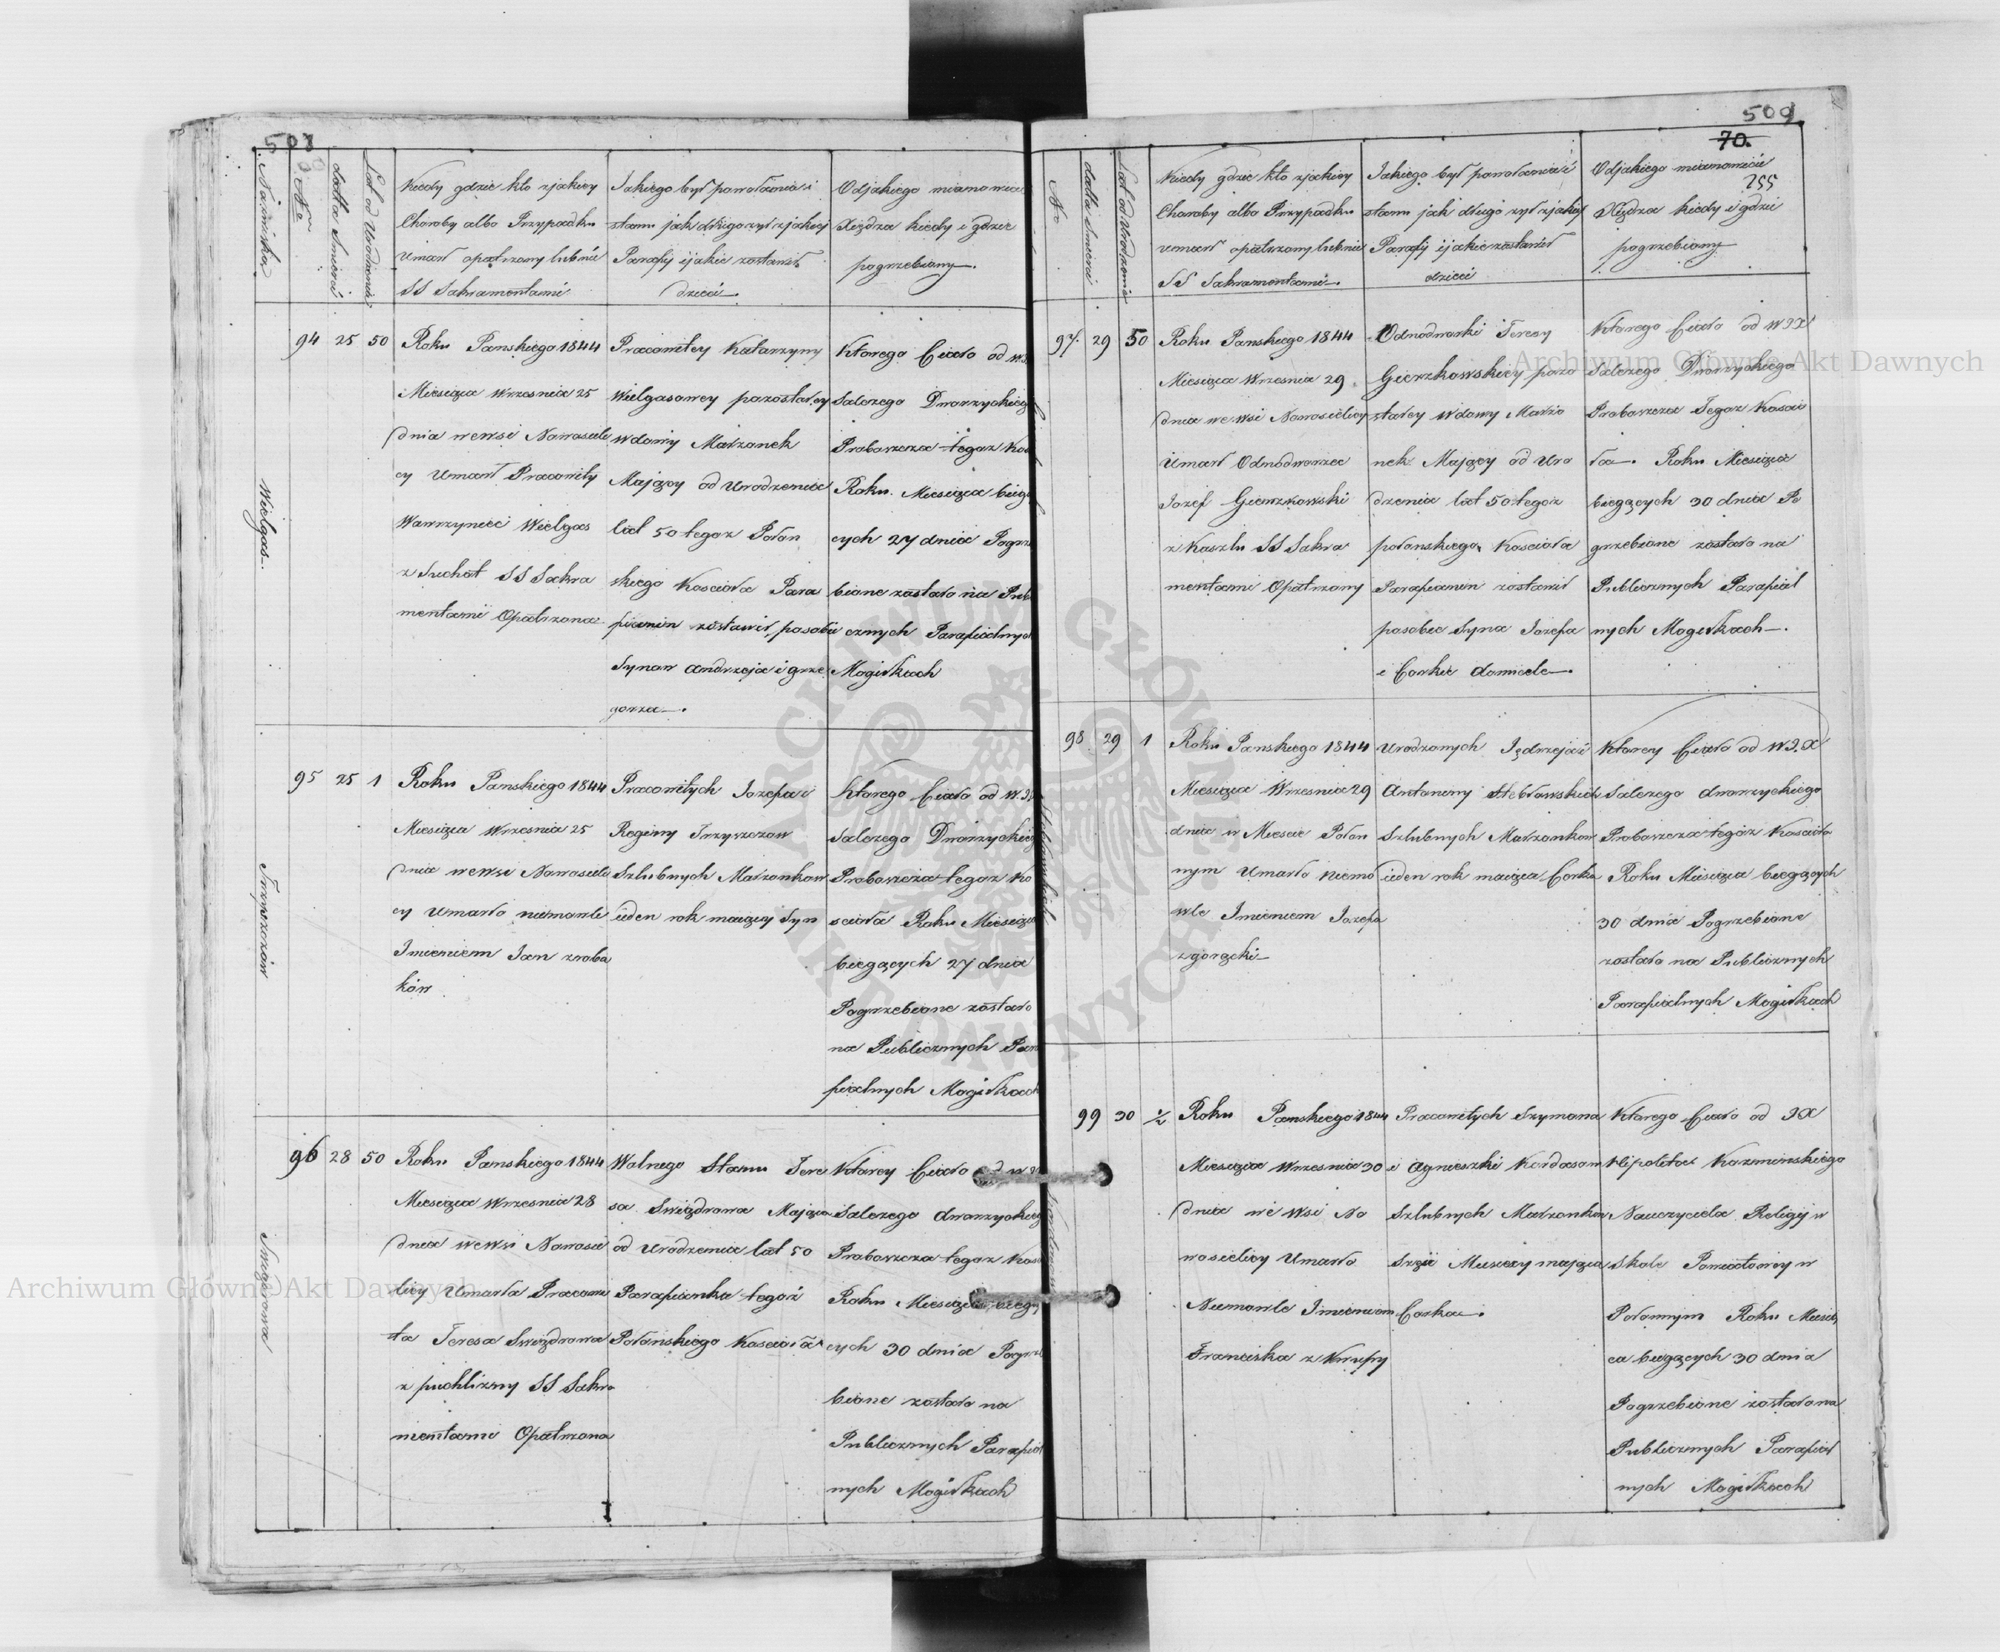 508
Nazwiska
No
datta Smierci
Lat od Urodzenia
Kiedy gdzie kto zjakiey
Choroby albo Przypadku
Umarł opatrzony lub nie
SS Sakramentami
Jakiego był powołania i
stanu jak długo żył zjakiey
Parafij ijakie zostawił
dzieci
Odjakiego mianowicie
Xiędza kiedy i gdzie
pogrzebiony
Wielgas
94 25 50
Roku Panskiego 1844
Miesiąca Wrzesnia 25
dnia wewsi Nawosiele
cy Umarł Pracowity
Wawrzyniec Wielgas
z Suchot SS Sakra
mentami Opatrzona
Pracowitey Katarzyny
Wielgasowey pozostałey
wdowy Małzonek
Maiący od Urodzenia
lat 50 tegoz Połon
skiego Kosciola Para
fianin zostawił posobie
Synow Andrzeja i grze
gorza
Ktorego Ciało od W
Salezego Dworzyckieg
Proboszcza tegoz Ko
Roku Miesiąca bieg
cych 27 dnia Pogrz
bione zostało na Publ
cznych Parafialnych
Mogiłkach
95 25 1
Roku Panskiego 1844
Miesiąca Wrzesnia 25
dnia wewsi Nawosiele
cy Umarło niemowle
Imieniem Jan zroba
ków
Pracowitych Jozefa i
Reginy
Szlubnych Małzonkow
ieden rok maiący Syn
Ktorego Ciało od W
Salezego Dworzyckieg
Proboszcza tegoz Ko
sciola Roku Miesiąca
biegących 27 dnia
Pogrzebione zostało
na Publicznych Para
fialnych Mogiłkach
96 28 50
Roku Panskiego 1844
Miesiąca Wrzesnia 28
dnia wewsi Nawosie
licy Umarła Pracowi
ta Teresa Swiązdrowa
z puchlizny SS Sakra
mentami Opatrzona
Wolnego Stanu Tere
sa Swiązdrowa Maiąca
od Urodzenia lat 50
Parafianka tegoż
Połońskiego Kosciola
Ktorey Ciało od W
Salezego dworzyckieg
Proboszcza tegoz Kosc
Roku Miesiąca bieg
cych 30 dnia Pogrze
bione zostało na
Publicznych Parafial
nych Mogiłkach
509
70.
255
No
datta Smierci
Lat od Urodzenia
Kiedy gdzie kto zjakiey
Choroby albo Przypadku
umarł opatrzony lub nie
SS Sakramentami
Jakiego był powołania i
stanu jak długo żył zjakiey
Parafij ijakie zostawił
dzieci
Odjakiego mianowicie
Xiędza kiedy i gdzie
pogrzebiony
97. 29 50
Roku Panskiego 1844
Miesiąca Wrzesnia 29
dnia we wsi Nowosielicy
Umarł Odnodworzec
Jozef Gierzkowski
z Kaszlu SS Sakra
mentami Opatrzony
Odnodworki Teresy
Gierzkowskiey pozo
stałey Wdowy Małżo
nek Maiący od Uro
dzenia lat 50 tegoż
połonskiego Kosciola
Parafianin zostawił
posobie Syna Jozefa
i Corkie domicele
Ktorego Ciało od WJX
Salezego Dworzyckiego
Proboszcza Tegoz Koscio
ła. Roku Miesiąca
biegących 30 dnia Po
grzebione zostało na
Publicznych Parafial
nych Mogiłkach
98 29 1
Roku Panskiego 1844
Miesiąca Wrzesnia 29
dnia w Miescie Połon
nym Umarło niemo
wle Imieniem Jozefa
zgorączki
Urodzonych Jędrzeja i
Antoniny
Szlubnych Małzonkow
ieden rok maiąca Corka
Ktorey Ciało od WJX
Salezego dworzyckiego
Proboszcza tegoż Kosciola
Roku Miesiąca biegących
30 dnia Pogrzebione
zostało na Publicznych
Parafialnych Mogiłkach
99 30 1/2
Roku Panskiego 1844
Miesiąca Wrzesnia 30
dnia we Wsi No
wosielicy Umarło
Niemowle Imieniem
Franciska z Krupy
Pracowitych Szymona
i Agnieszki Kordasow
Szlubnych Małzonkow
Szęść Miesiecy maiąca
Corka
Ktorego Ciało od JX
Hipolita Kozminskiego
Nauczyciela Religij w
Skole Powiatowey w
Połonnym Roku Miesią
ca biegących 30 dnia
Pogrzebione zostało na
Publicznych Parafial
nych Mogiłkach
Archiwum Główne Akt Dawnych
Archiwum Główne Akt Dawnych
ARCHIWUM GŁÓWNE AKT DAWNYCH